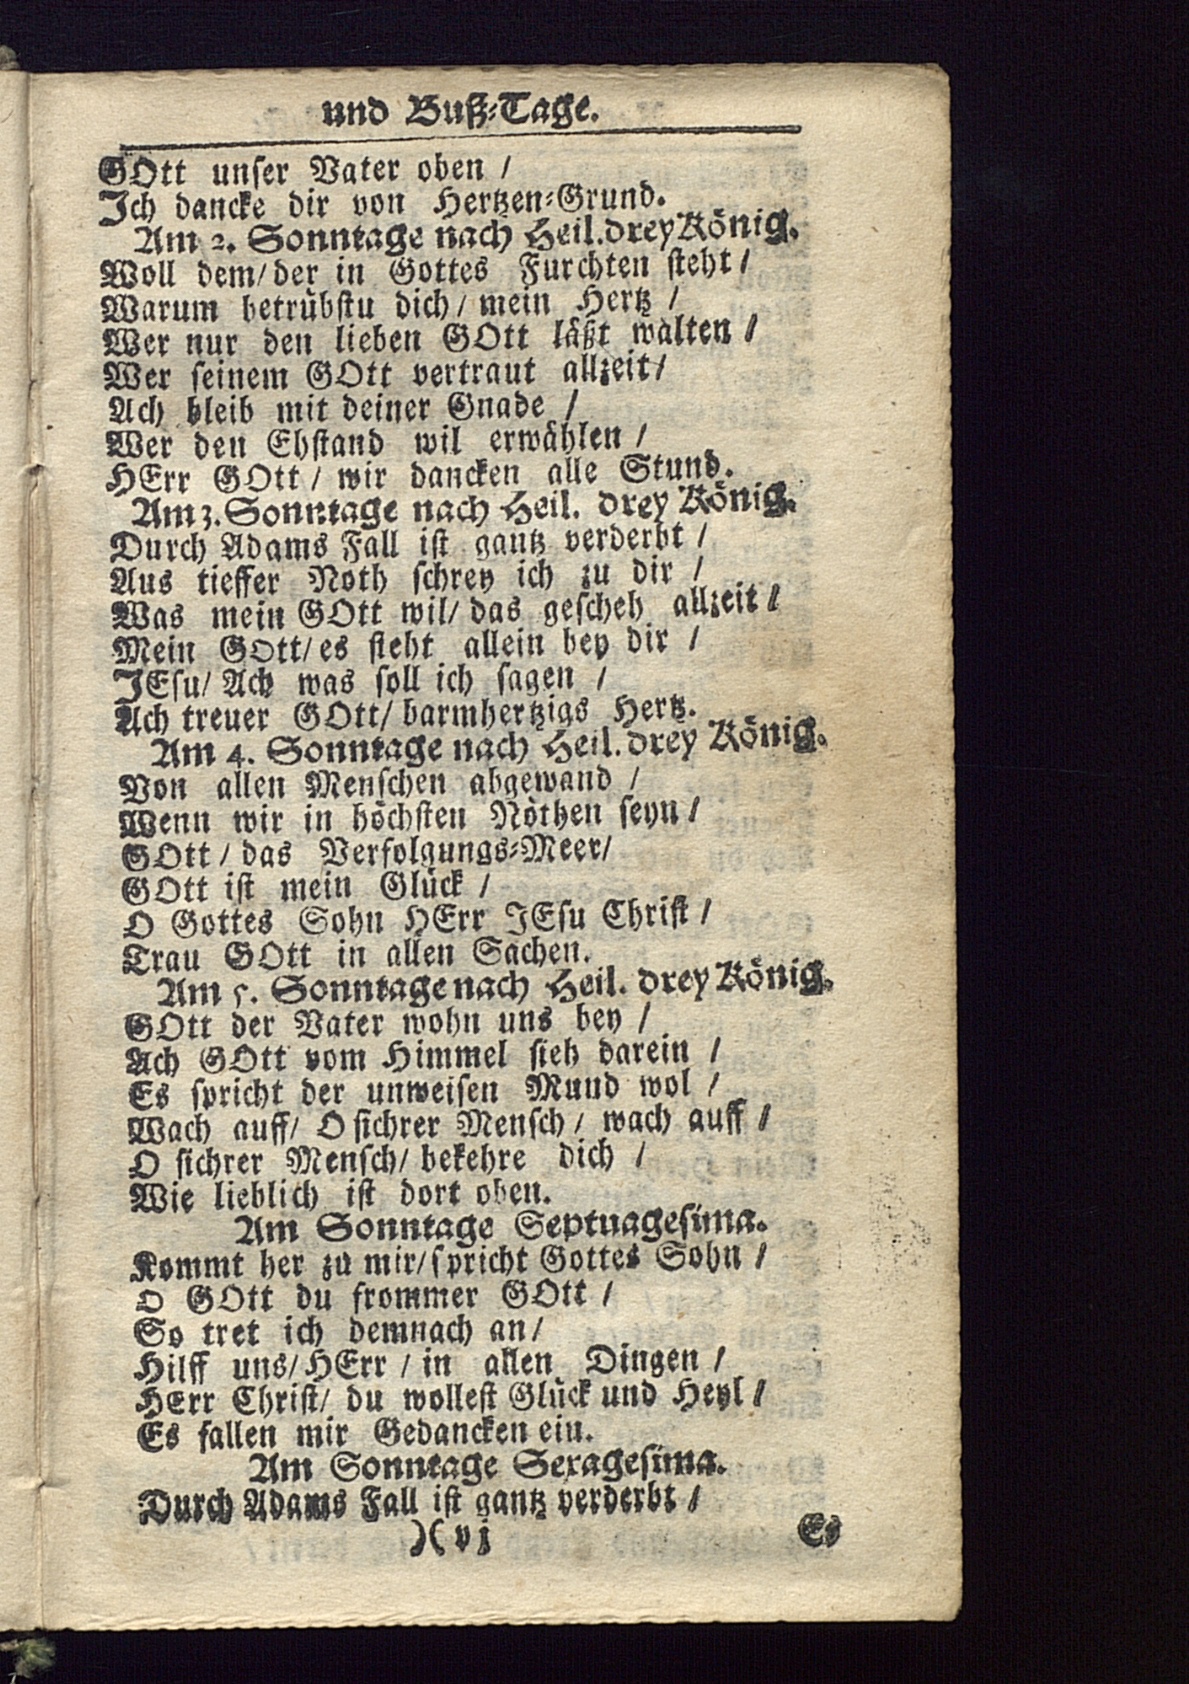 und Buß-Tage.
GOtt unser Vater oben /
Ich dancke dir von Hertzen-Grund.
Am 2. Sonntage nach Heil. drey König.
Woll dem/ der in Gottes Furchten steht /
Warum betrübstu dich / mein Hertz /
Wer nur den lieben GOtt läßt walten /
Wer seinem GOtt vertraut allzeit /
Ach bleib mit deiner Gnade /
Wer den Ehstand wil erwählen /
HErr GOtt / wir dancken alle Stund.
Am 3. Sonntage nach Heil. drey König.
Durch Adams Fall ist gantz verderbt /
Aus tieffer Noth schrey ich zu dir /
Was mein GOtt wil/ das gescheh allzeit /
Mein GOtt/ es steht allein bey dir /
JEsu/ Ach was soll ich sagen /
Ach treuer GOtt/ barmhertzigs Hertz.
Am 4. Sonntage nach Heil. drey König.
Von allen Menschen abgewand /
Wenn wir in höchsten Nöthen seyn /
GOtt / das Verfolgungs-Meer/
GOtt ist mein Glück /
O Gottes Sohn HErr JEsu Christ /
Trau GOtt in allen Sachen.
Am 5. Sonntage nach Heil. drey König.
GOtt der Vater wohn uns bey /
Ach GOtt vom Himmel sieh darein /
Es spricht der unweisen Mund wol /
Wach auff/ O sichrer Mensch / wach auff /
O sichrer Mensch/ bekehre dich /
Wie lieblich ist dort oben.
Am Sonntage Septuagesima.
Kommt her zu mir/ spricht Gottes Sohn /
O GOtt du frommer GOtt /
So tret ich demnach an/
Hilff uns/ HErr / in allen Dingen /
HErr Christ/ du wollest Glück und Heyl /
Es fallen mir Gedancken ein.
Am Sonntage Sexagesima.
Durch Adams Fall ist gantz verderbt /
)( vj Es